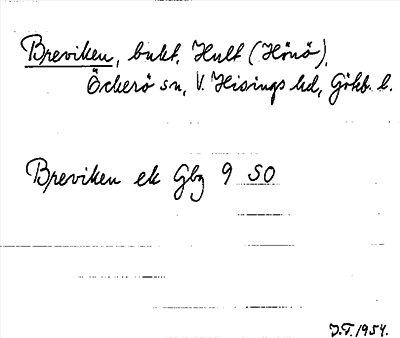 Breviken, bukt, Hult (Hönö),
Öckerö sn, V. Hisings hd, Göteb. l.
Breviken ek Gbg 9 SO
J.T. 1954.